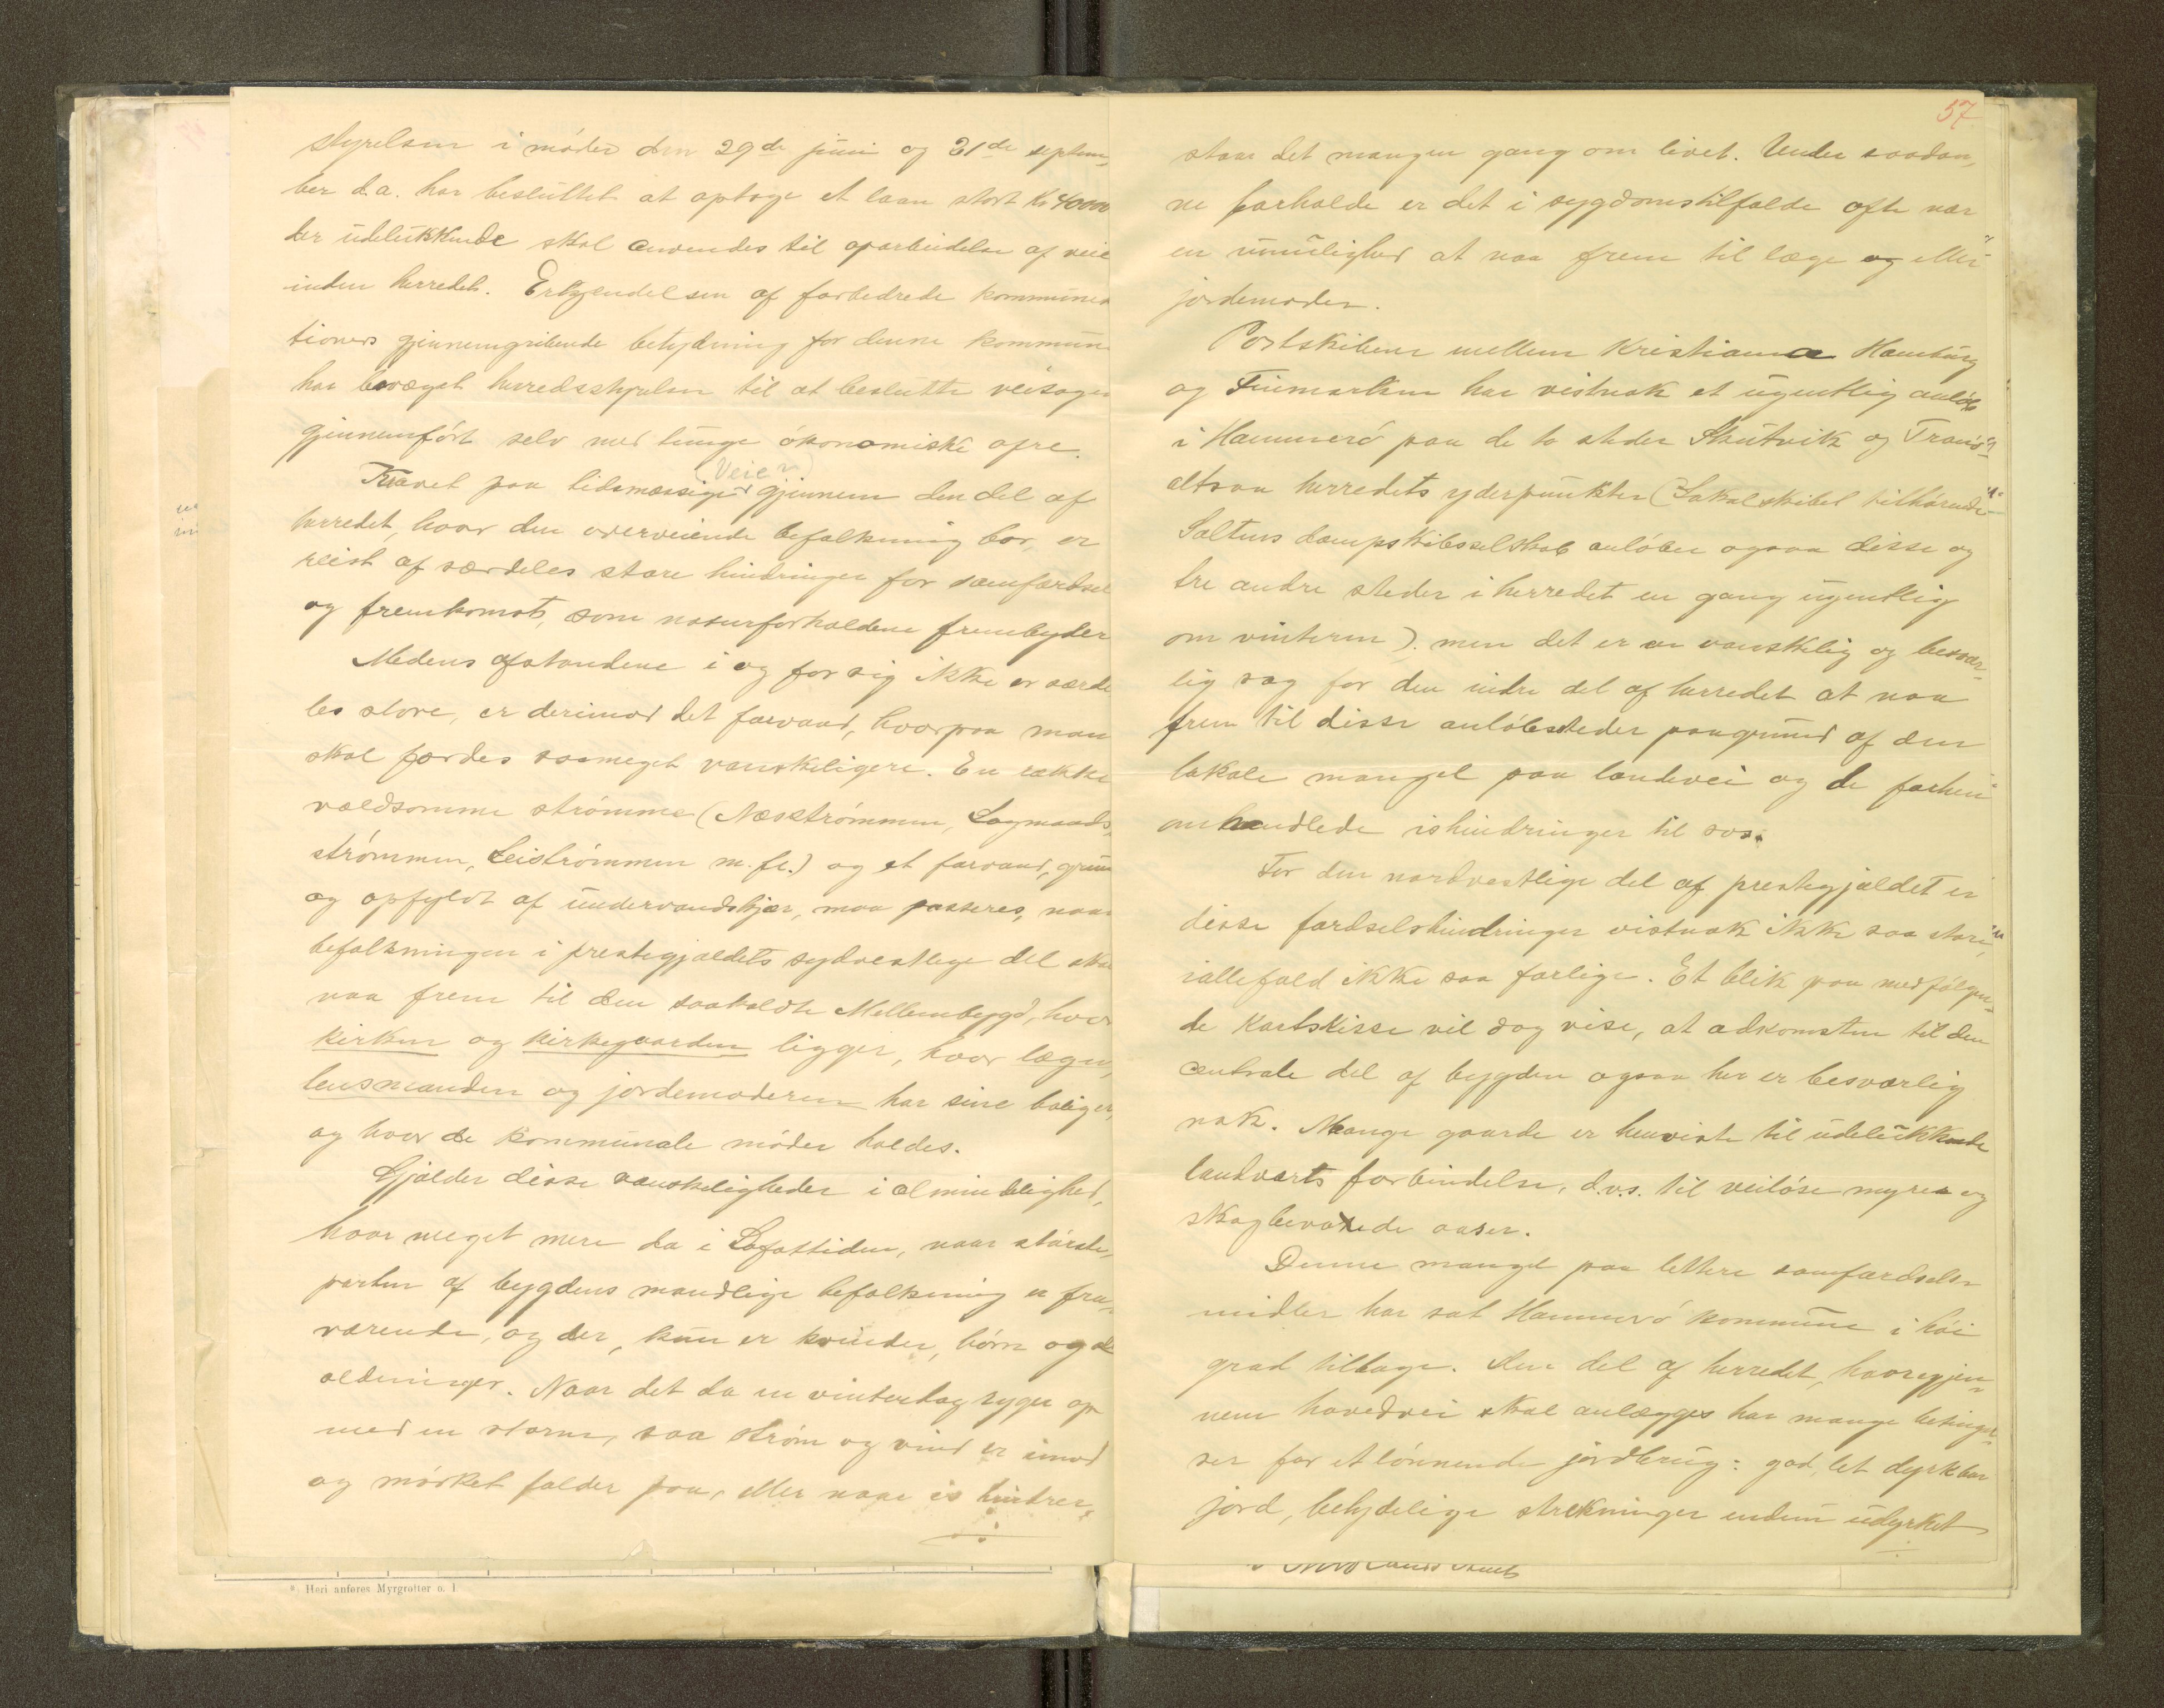 styrelsen i møder den 29de juni og 21de septem-
ber d.a. har besluttet at optage et laan stort Kr 40000
der udelukkende skal anvendes til oparbeidelse af veie
inden herredet. Erkjendelsen af forbedrede kommunika
tioners gjennemgribende betydning for denne kommune
har bevæget herredsstyrelsen til at beslutte veisagen
gjennemført selv med tunge økonomiske ofre.
(Veier)
Kravet paa tidsmæssige gjennem den del af
herredet, hvor den overveiende befolkning bor, er
reist af særdeles store hindringer for samfærdsel
og fremkomst, som naturforholdene frembyder
Medens afstandene i og for sig ikke er særde
les store, er derimod det farvand, hvorpaa man
skal færdes saameget vanskeligere. En række
voldsomme strømme (Næsstrømmen, Lagmands-
strømmen, Leistrømmen m.fl.) og et farvand, grund
og opfyldt af undervandskjær, maa passeres, naar
befolkningen i prestegjældets sydvestlige del skal
naa frem til den saakaldte Mellembygd, hvor
kirken og kirkegaarden ligger, hvor lægen,
lensmanden og jordemoderen har sine boliger,
og hvor de kommunale møder holdes.
Gjælder disse vanskeligheder i almindelighed,
hvor meget mere da i Lofottiden, naar største-
parten af bygdens mandlige befolkning er fra-
værende, og der, kun er kvinder, børn og
oldinger. Naar det da en vinterdag ryger op
med en storm, saa strøm og vind er imod
og mørket falder paa, eller naar is hindrer,
57
staar det mangen gang om livet. Under saadan-
ne forholde er det i sygdomstilfælde ofte nær
en umulighed at naa frem til læge og eller
jordemoder.
Postskibene mellem Kristiania Hamburg
og Finmarken har vistnok et ugentlig anløb
i Hammerø paa de to steder Skutvik og Tranø
altsaa herredets yderpunkter (Lokalskibet tilhørende
Saltens dampskibsselskab anløber ogsaa disse og
tre andre steder i herredet en gang ugentlig
om vinteren). men det er en vanskelig og besvær-
lig sag for den indre del af herredet at naa
frem til disse anløbssteder paagrund af den
lokale mangel paa landevei og de forhen
omhandlede ishindringer til søs.
For den nordvestlige del af prestegjældet er
disse færdselshindringer vistnok ikke saa store,
iallefald ikke saa farlige. Et blik paa medfølgen-
de kartskisse vil dog vise, at adkomsten til den
centrale del af bygden ogsaa her er besværlig
nok. Mange gaarde er henviste til udelukkende
landværts forbindelse, d.v.s. til veiløse myrer og
skogbevoxede aaser.
Denne mangel paa lettere samfærdsels-
midler har sat Hammerø kommune i høi
grad tilbage. Den del af herredet, hvorigjen-
nem hovedvei skal anlægges har mange betingel-
ser for et lønnende jordbrug: god, let dyrkbar
jord, betydelige strækninger endnu udyrket
* Heri anføres Myrgrøfter o. l.
Nordlands Amt